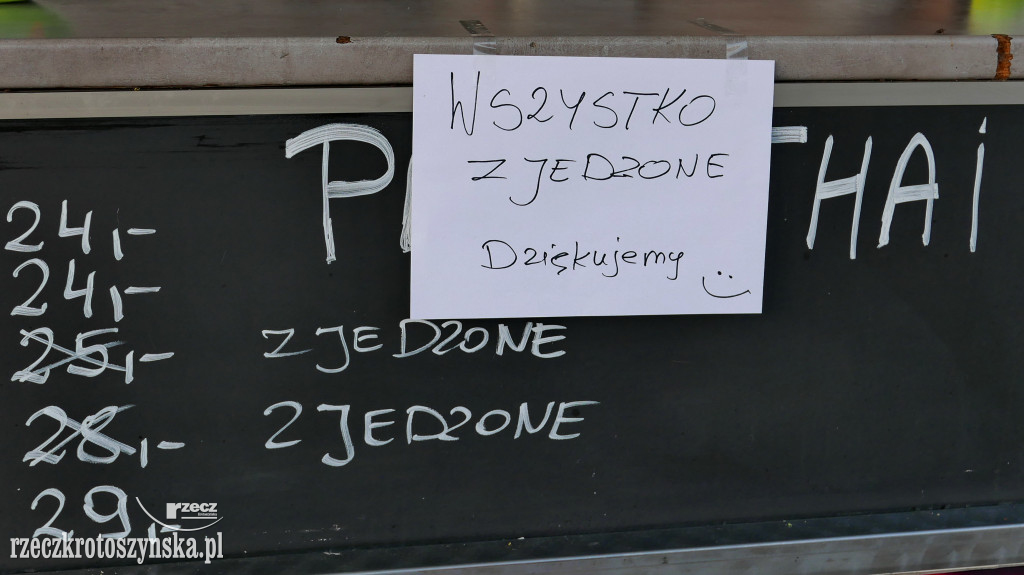 WSZYSTKO
ZJEDZONE
Dziękujemy
P THAI
24,-
24,-
25,- ZJEDZONE
28,- ZJEDZONE
29,-
rzecz
rzeczkrotoszyńska.pl